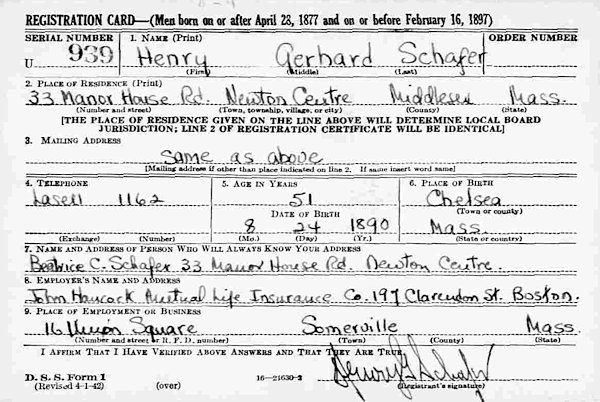 REGISTRATION CARD—(Men born on or after April 28, 1877 and on or before February 16, 1897)
SERIAL NUMBER 1. NAME (Print) ORDER NUMBER
U 939 Henry Gerhard Schafer
(First) (Middle) (Last)
2. PLACE OF RESIDENCE (Print)
33 Manor House Rd. Newton Centre Middlesex Mass.
(Number and street) (Town, township, village, or city) (County) (State)
[THE PLACE OF RESIDENCE GIVEN ON THE LINE ABOVE WILL DETERMINE LOCAL BOARD
JURISDICTION; LINE 2 OF REGISTRATION CERTIFICATE WILL BE IDENTICAL]
3. MAILING ADDRESS
Same as above
[Mailing address if other than place indicated on line 2. If same insert word same]
4. TELEPHONE 5. AGE IN YEARS 6. PLACE OF BIRTH
Lasell 1162 51 Chelsea
DATE OF BIRTH (Town or county)
8 24 1890 Mass.
(Exchange) (Number) (Mo.) (Day) (Yr.) (State or country)
7. NAME AND ADDRESS OF PERSON WHO WILL ALWAYS KNOW YOUR ADDRESS
Beatrice C. Schafer 33 Manor House Rd. Newton Centre.
8. EMPLOYER'S NAME AND ADDRESS
John Hancock Mutual Life Insurance Co. 197 Clarendon St. Boston.
9. PLACE OF EMPLOYMENT OR BUSINESS
16 Union Square Somerville Mass.
(Number and street or R. F. D. number) (Town) (County) (State)
I AFFIRM THAT I HAVE VERIFIED ABOVE ANSWERS AND THAT THEY ARE TRUE.
Henry G. Schafer
D. S. S. Form 1
(Revised 4-1-42) (over) 16—21630-2 (Registrant's signature)